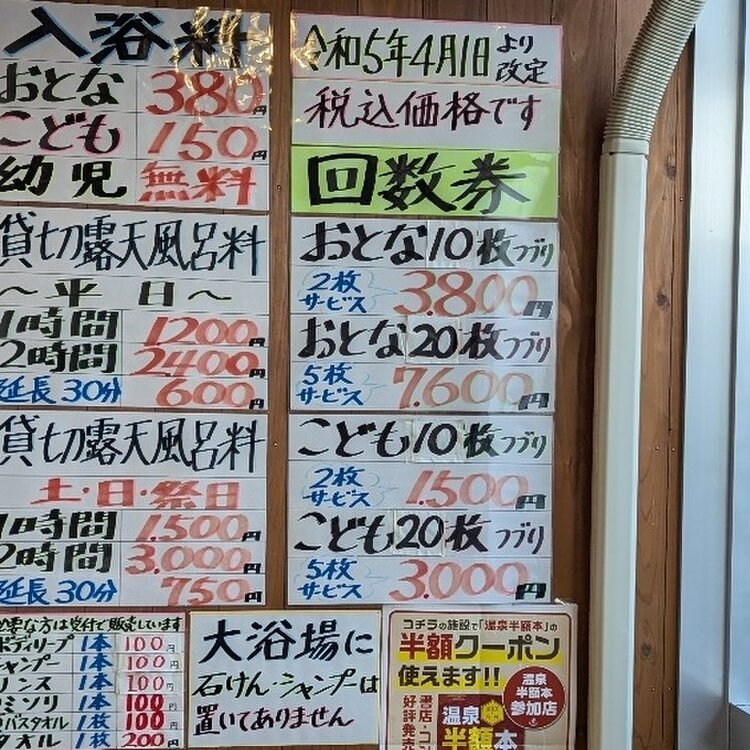 入浴料
おとな 380円
こども 150円
幼児 無料
貸切露天風呂料
～平日～
1時間 1200円
2時間 2400円
延長30分 600円
貸切露天風呂料
土・日・祭日
1時間 1.500円
2時間 3.000円
延長30分 750円
令和5年4月1日より改定
税込価格です
回数券
おとな10枚つづり
2枚サービス 3.800円
おとな20枚つづり
5枚サービス 7.600円
こども10枚つづり
2枚サービス 1.500円
こども20枚つづり
5枚サービス 3.000円
な方は受付で販売しています
ボディソープ 1本 100円
ャンプー 1本 100円
リンス 1本 100円
ミソリ 1本 100円
バスタオル 1枚 100円
タオル 1枚 200円
大浴場に
石けん・シャンプーは
置いてありません
コチラの施設で「温泉半額本」の
半額クーポン
使えます!!
温泉
半額本
参加店
書店・コン
好評発売
温泉
半額本